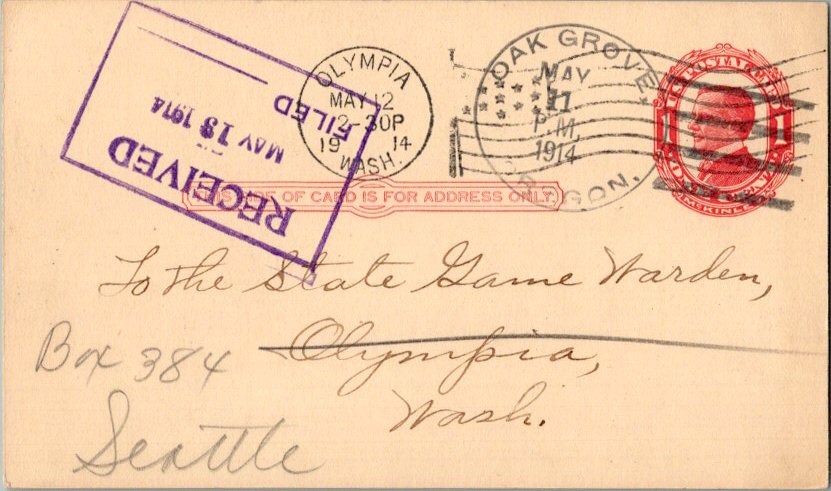 RECEIVED
MAY 13 1914
FILED
OLYMPIA
MAY 12
2-30P
19 14
WASH.
OAK GROVE,
MAY
11
P.M.
1914
OREGON.
1 1
McKINLEY
THIS SIDE OF CARD IS FOR ADDRESS ONLY.
To the State Game Warden,
Olympia,
Wash.
Box 384
Seattle